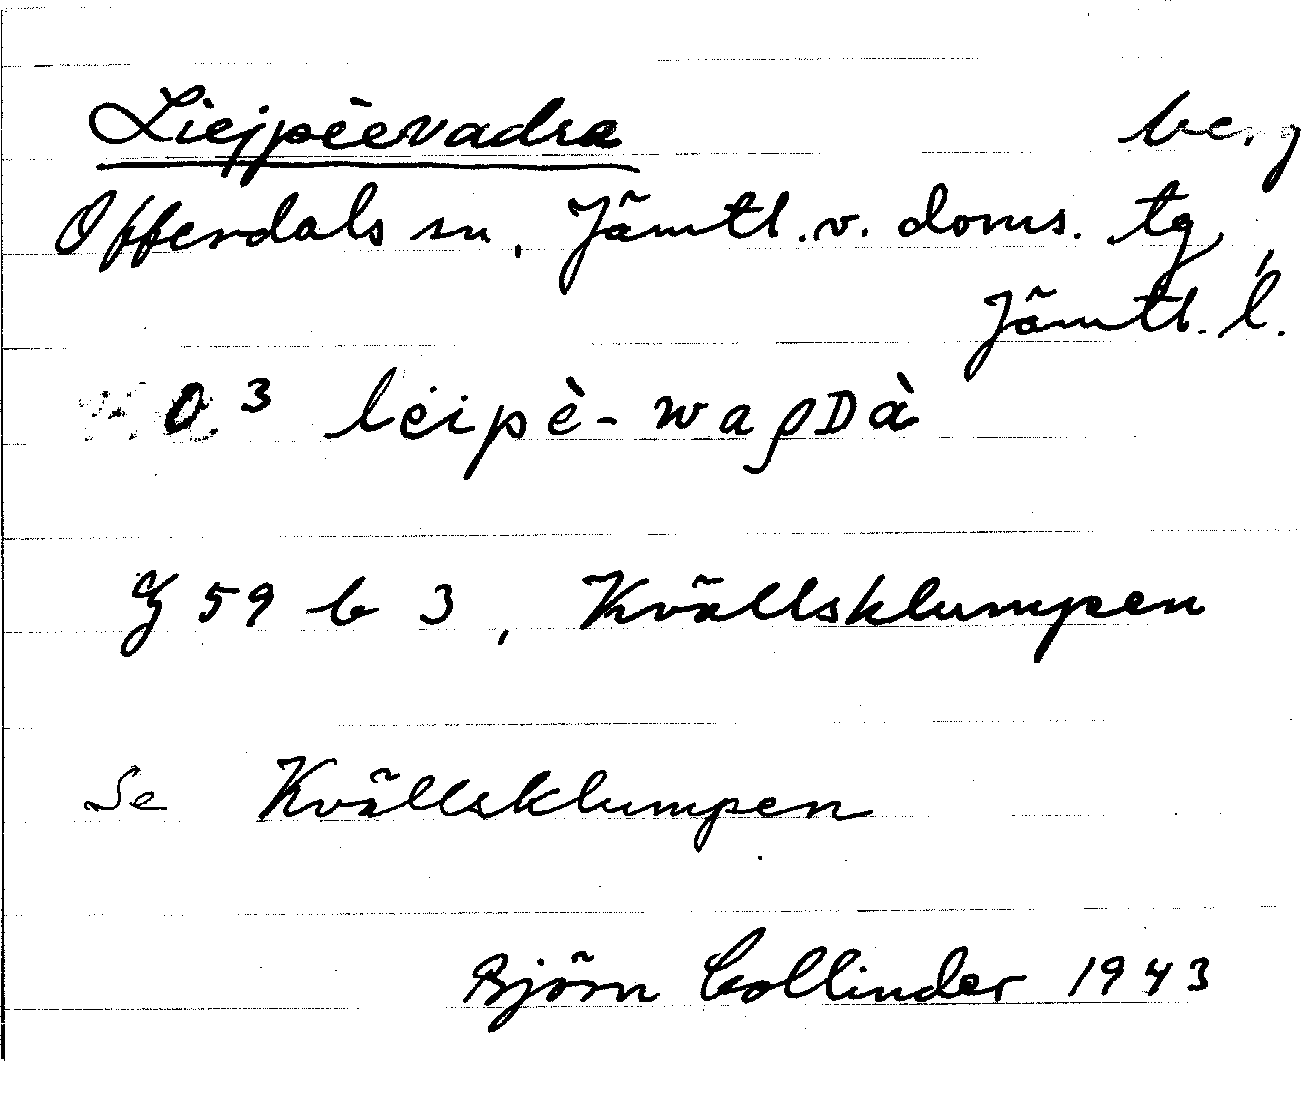 Liejpèevadra berg
Offerdals sn, Jämtl. v. doms. tg,
Jämtl. l.
O.³ leipè-waρDà
G 59 b 3, Kvällsklumpen
Se Kvällsklumpen
Björn Collinder 1943